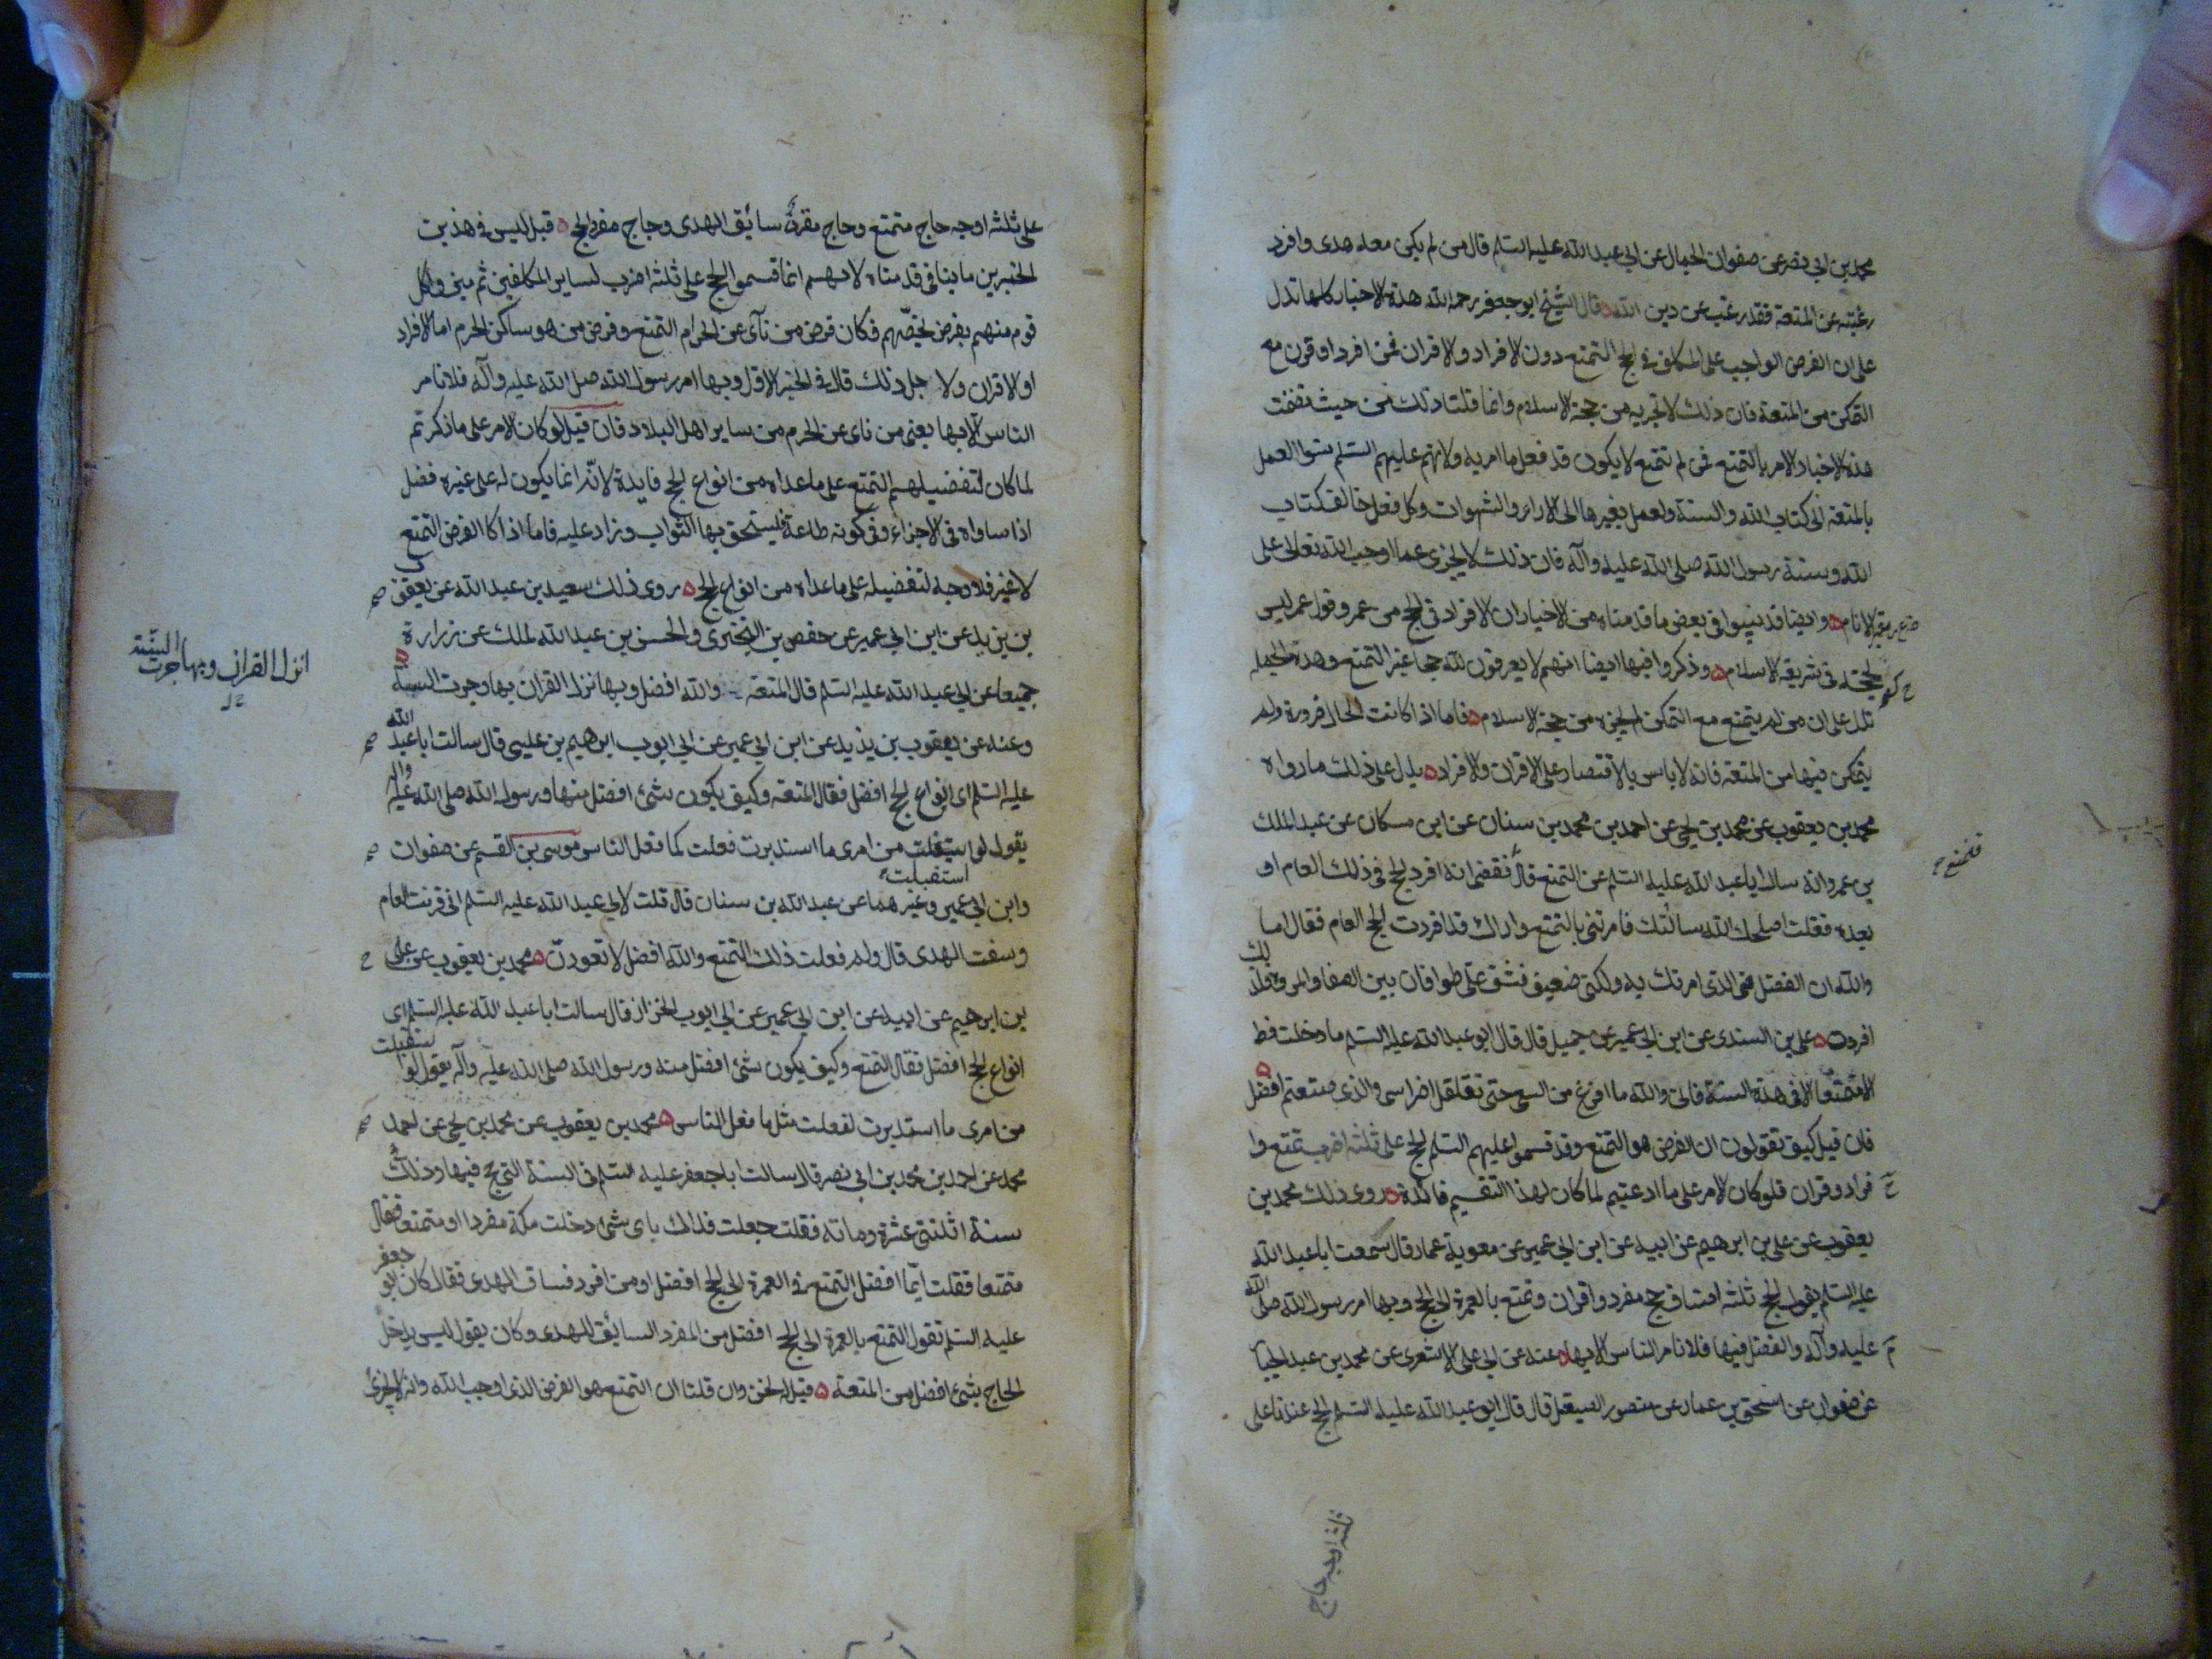 محمد بن ابي نصر عن صفوان الجمال عن ابي عبد الله عليه السلم قال من لم يكن معه هدى وافرد
رغبته عن المتعة فقد رغب عن دين الله قال الشيخ ابو جعفر رحمه الله هذه الاخبار كلها تدل
على ان الفرض الواجب على المكلف في الحج التمتع دون الافراد والاقران فمن افرد او قرن مع
التمكن من المتعة فان ذلك لا تجزيه من حجة الاسلام وانما قلنا ذلك من حيث تضمنت
هذه الاخبار الامر بالتمتع فمن لم يتمتع لا يكون قد فعل ما امر به ولانهم عليهم السلم نسبوا العمل
بالمتعة الى كتاب الله والسنة والعمل بغيرها الى الاراء والشهوات وكل فعل خالف كتاب
الله وسنة رسول الله صلى الله عليه وآله فان ذلك لا يجزى عما اوجب الله تعالى على
الانام وايضا قد بينوا في بعض ما قدمناه من الاخبار ان الافراد في الحج من عمر وقول عمر ليس
بحجة في شريعة الاسلام وذكروا فيها ايضا انهم لا يعرفون لله حجا غير التمتع وهذه الجمله
تدل على ان من لم يتمتع مع التمكن لم يجزه من حجة الاسلام فاما اذا كانت الحال ضرورة ولم
يتمكن فيها من المتعة فانه لا باس بالاقتصار على الاقران والافراد يدل على ذلك ما رواه
محمد بن يعقوب عن محمد بن يحيى عن احمد بن محمد بن سنان عن ابن مسكان عن عبد الملك
بن عمرو انه سال ابا عبد الله عليه السلم عن التمتع قال فقضى انه افرد الحج في ذلك العام او
فتمتع
بعده فقلت اصلحك الله سالتك فامرتني بالتمتع واراك قد افردت الحج العام فقال اما
والله ان الفضل لفي الذى امرتك به ولكني ضعيف فشق علي طوافان بين الصفا والمروة فلذلك
افردت علي بن السندى عن ابن ابي عمير عن جميل قال قال ابو عبد الله عليه السلم ما دخلت قط
الا متمتعا الا في هذه السنة فاني والله ما افرغ من السعى حتى تقلقل اضراسى والذى صنعتم افضل
فان قيل كيف تقولون ان الفرض هو التمتع وقد قسموا عليهم السلم الحج على ثلثه اضرب تمتع وا
فراد وقران فلو كان الامر على ما ادعيتم لما كان لهذا التقسيم فائدة روى ذلك محمد بن
يعقوب عن علي بن ابرهيم عن ابيه عن ابن ابي عمير عن معوية عمار قال سمعت ابا عبد الله
عليه السلم يقول الحج ثلثه اصناف حج مفرد واقران وتمتع بالعمرة الى الحج وبها امر رسول الله صلى الله
عليه وآله والفضل فيها فلا نامر الناس الا بها عنه عن ابي علي الاشعرى عن محمد بن عبد الجبا
عن صفوان عن اسحق بن عمار عن منصور الصيقل قال قال ابو عبد الله عليه السلم الحج عندنا على
ثلثه اوجه حاج
على ثلثه اوجه حاج متمتع وحاج مقرن سائق الهدى وحاج مفرد الحج قيل ليس في هذين
الخبرين ما ينافي قدمناه لانهم انما قسموا الحج على ثلثه اضرب لساير المكلفين ثم بينوا كل
قوم منهم بفرض يخصهم فكان فرض من نآى عن الحرام التمتع وفرض من هو ساكن الحرم اما الافراد
او الاقران ولاجل ذلك قال في الخبر الاول وبها امر رسول الله صلى الله عليه وآله فلا نامر
الناس الا بها يعنى من ناى عن الحرم من ساير اهل البلاد فان قيل لو كان الامر على ما ذكرتم
لما كان لتفضيلهم التمتع على ما عداه من انواع الحج فايدة لانه انما يكون له على غيره فضل
اذا ساواه في الاجزاء وفي كونه طاعة فليستحق بها الثواب وزاد عليه فاما اذا كا الفرض التمتع
لا غير فلا وجه لتفضيله على ما عداه من انواع الحج روى ذلك سعيد بن عبد الله عن يعقوب
بن يزيد عن ابن ابي عمير عن حفص بن البخترى والحسن بن عبد الله لملك عن زرارة
جميعا عن ابي عبد الله عليه السلم قال المتعة والله افضل وبها نزل القران بها وجرت السنة
انزل القران وبها جرت السنة
وعنه عن يعقوب بن يزيد عن ابن ابي عمير عن ابي ايوب ابرهيم بن عيسى قال سالت ابا عبد الله
عليه السلم اى انواع الحج افضل فقال المتعة وكيف يكون شئ افضل منها ورسول الله صلى الله عليه وآله
يقول لو استقبلت من امرى ما استدبرت فعلت كما فعل الناس موسى بن القسم عن صفوان
استقبلت
وابن ابي عمير وغيرهما عن عبد الله بن سنان قال قلت لابي عبد الله عليه السلم اني قرنت العام
وسقت الهدى قال ولم فعلت ذلك التمتع والله افضل لا تعودن محمد بن يعقوب عن علي
بن ابرهيم عن ابيه عن ابن ابي عمير عن ابي ايوب الخزاز قال سالت ابا عبد الله عليه السلم اى
انواع الحج افضل فقال التمتع وكيف يكون شئ افضل منه ورسول الله صلى الله عليه وآله يقول لو استقبلت
من امرى ما استدبرت لفعلت مثل ما فعل الناس محمد بن يعقوب عن محمد بن يحيى عن احمد
محمد عن احمد بن محمد بن ابي نصر قال سالت ابا جعفر عليه السلم في السنة التي حج فيها وذلك
سنة اثنتي عشرة ومائة فقلت جعلت فداك باى شئ دخلت مكة مفردا او متمتعا فقال
متمتعا فقلت ايما افضل التمتع في العمرة الى الحج افضل او من افرد فساق الهدى فقال كان ابو جعفر
عليه السلم تقول التمتع بالعمرة الى الحج افضل من المفرد السائق للهدى وكان يقول ليس يدخل
الحاج بشئ افضل من المتعة قيل له نحن وان قلنا ان التمتع هو الفرض الذى اوجب الله وانه لا يجزئ